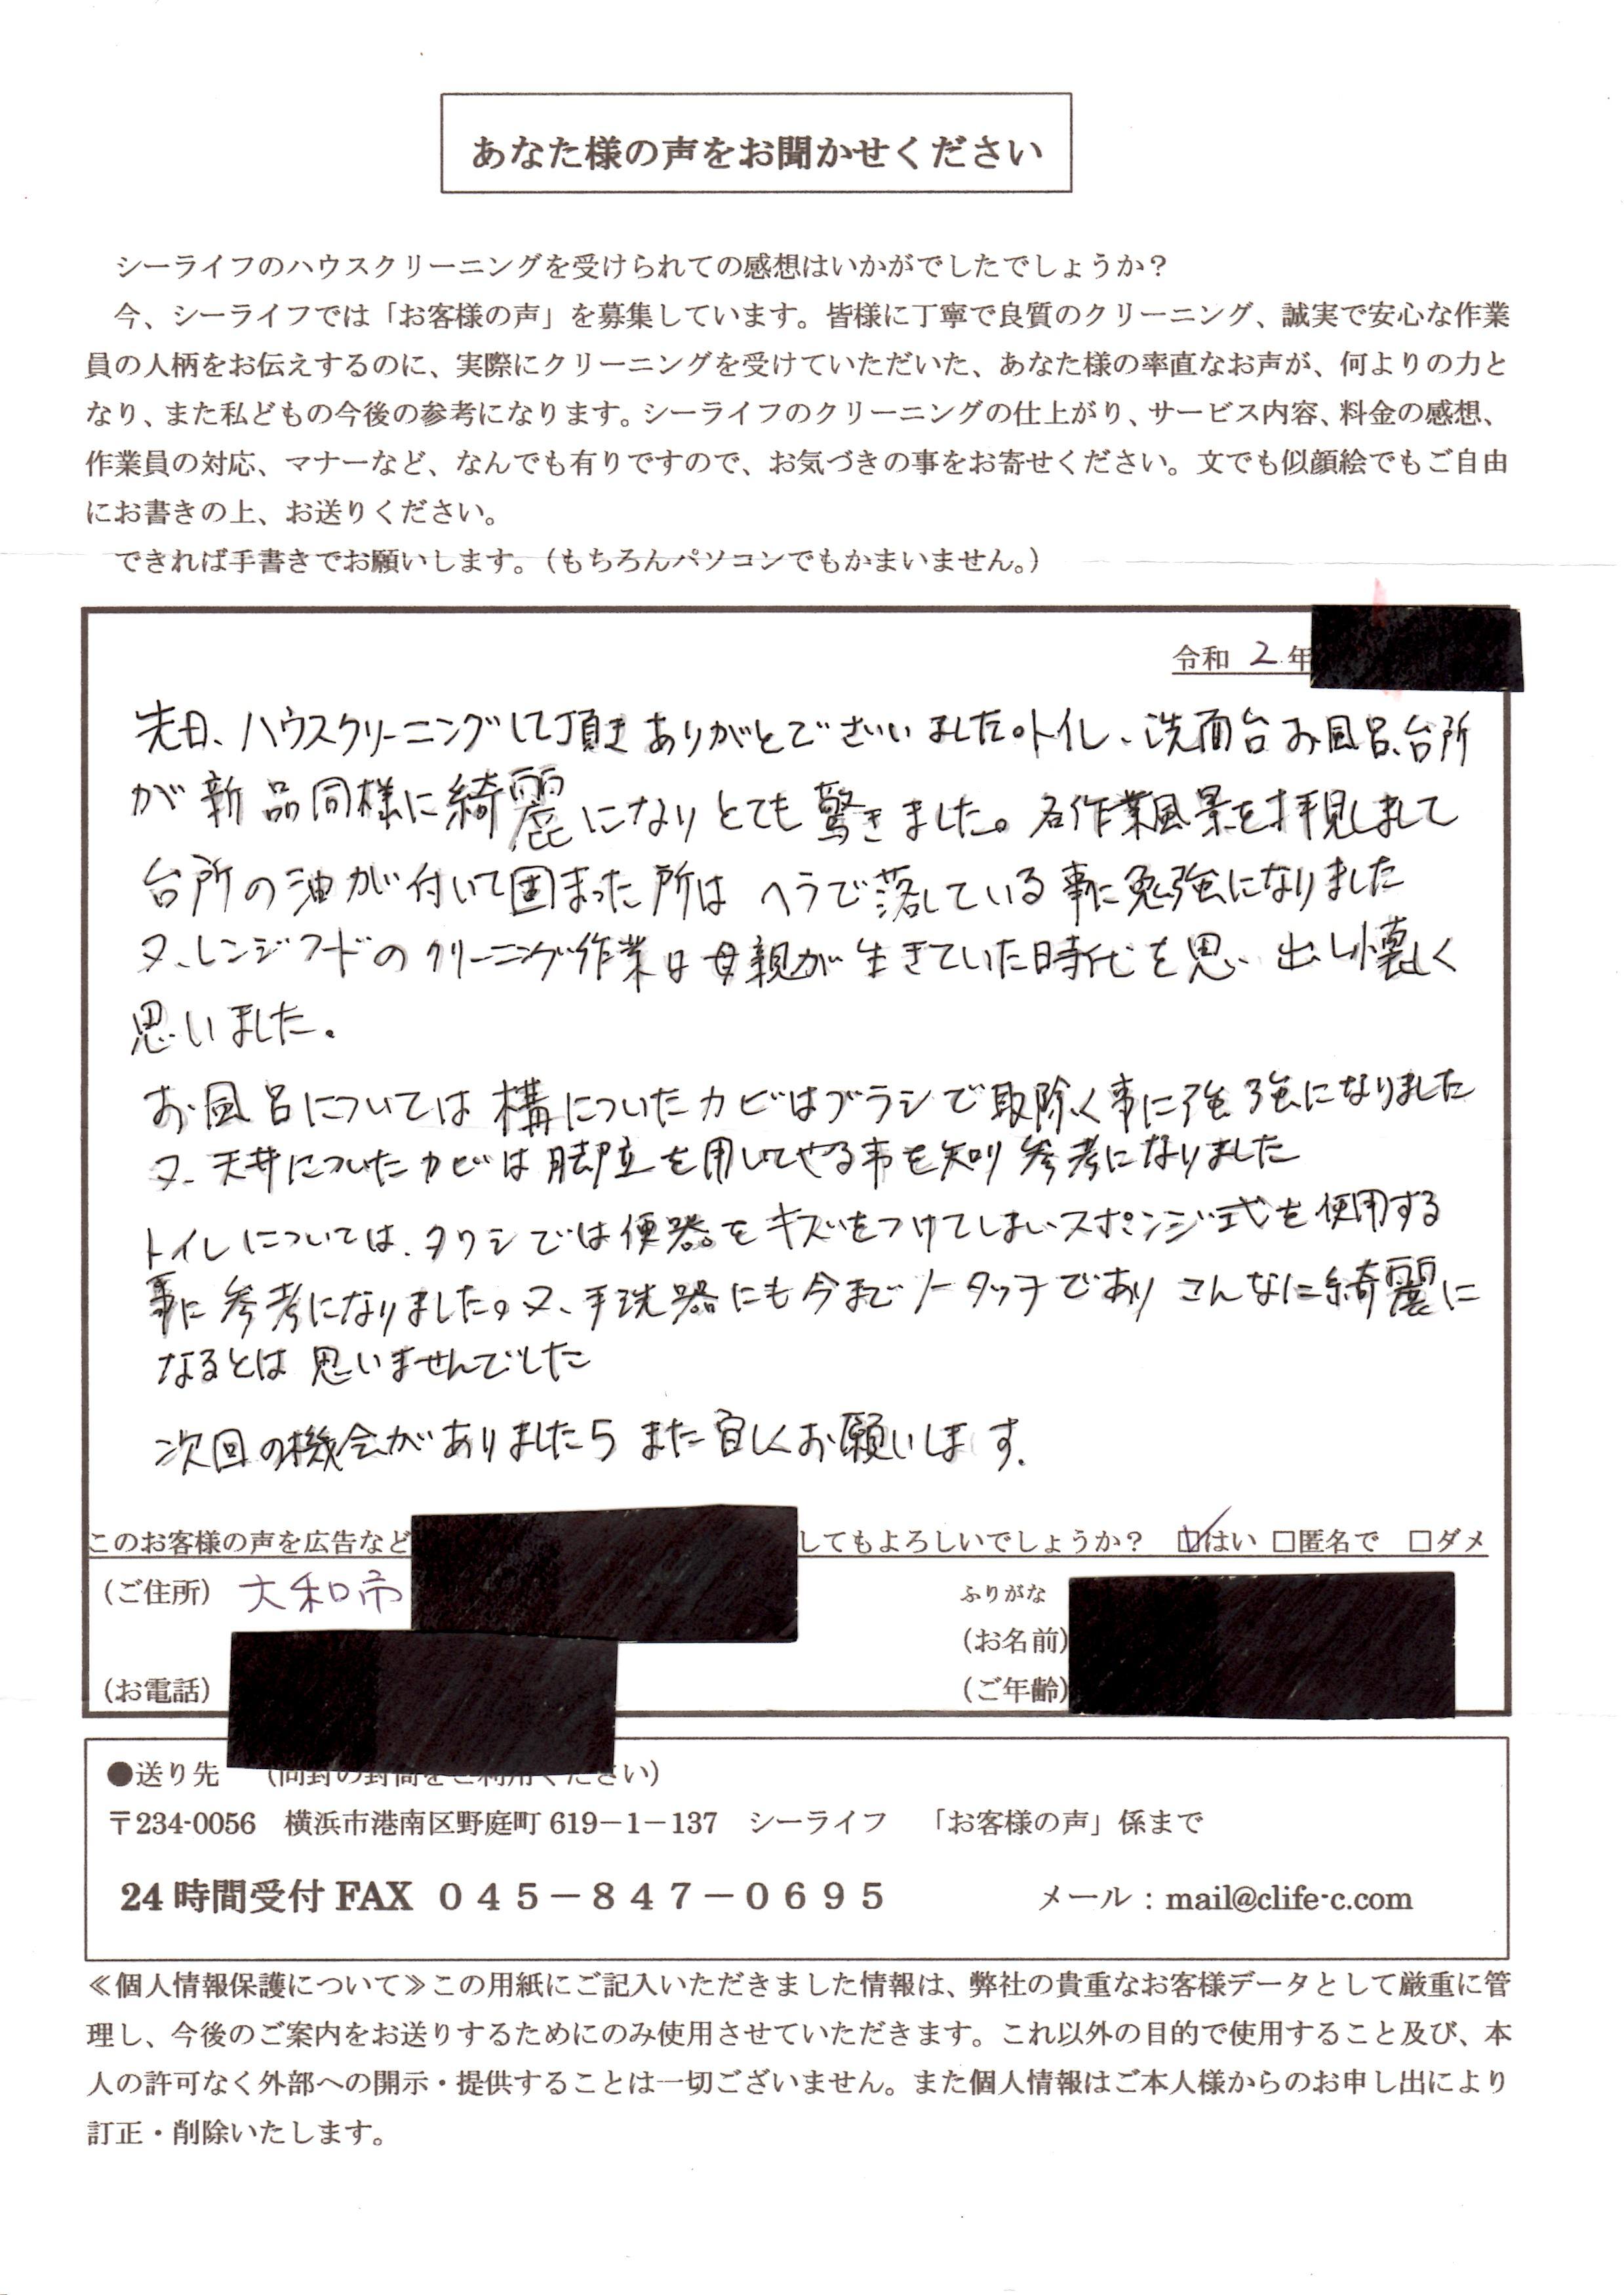 あなた様の声をお聞かせください
シーライフのハウスクリーニングを受けられての感想はいかがでしたでしょうか？
今、シーライフでは「お客様の声」を募集しています。皆様に丁寧で良質のクリーニング、誠実で安心な作業
員の人柄をお伝えするのに、実際にクリーニングを受けていただいた、あなた様の率直なお声が、何よりの力と
なり、また私どもの今後の参考になります。シーライフのクリーニングの仕上がり、サービス内容、料金の感想、
作業員の対応、マナーなど、なんでも有りですので、お気づきの事をお寄せください。文でも似顔絵でもご自由
にお書きの上、お送りください。
できれば手書きでお願いします。（もちろんパソコンでもかまいません。）
令和 2 年
先日、ハウスクリーニングして頂きありがとでざいいました。トイレ、洗面台お風呂、台所
が新品同様に綺麗になりとても驚きました。名作業風景を拝見しまして
台所の油が付いて固まった所はヘラで落している事に勉強になりました
又、レンジフードのクリーニング作業は母親が生きていた時代を思い出し懐しく
思いました。
お風呂については構についたカビはブラシで取除く事に強強になりました
又、天井についたカビは脚立を用してやる事を知り参考になりました
トイレについては、タワシでは便器をキズをつけてしまいスポンジ式を使用する
事に参考になりました。又、手洗器にも今までノータッチでありこんなに綺麗に
なるとは思いませんでした
次回の機会がありましたらまた宜しくお願いします。
このお客様の声を広告など してもよろしいでしょうか？ ☑はい □匿名で □ダメ
（ご住所） 大和市 ふりがな
（お名前）
（お電話） （ご年齢）
●送り先 （同封の封筒をご利用ください）
〒234-0056 横浜市港南区野庭町 619－1－137 シーライフ 「お客様の声」係まで
24 時間受付 FAX ０４５－８４７－０６９５ メール：mail@clife-c.com
≪個人情報保護について≫この用紙にご記入いただきました情報は、弊社の貴重なお客様データとして厳重に管
理し、今後のご案内をお送りするためにのみ使用させていただきます。これ以外の目的で使用すること及び、本
人の許可なく外部への開示・提供することは一切ございません。また個人情報はご本人様からのお申し出により
訂正・削除いたします。